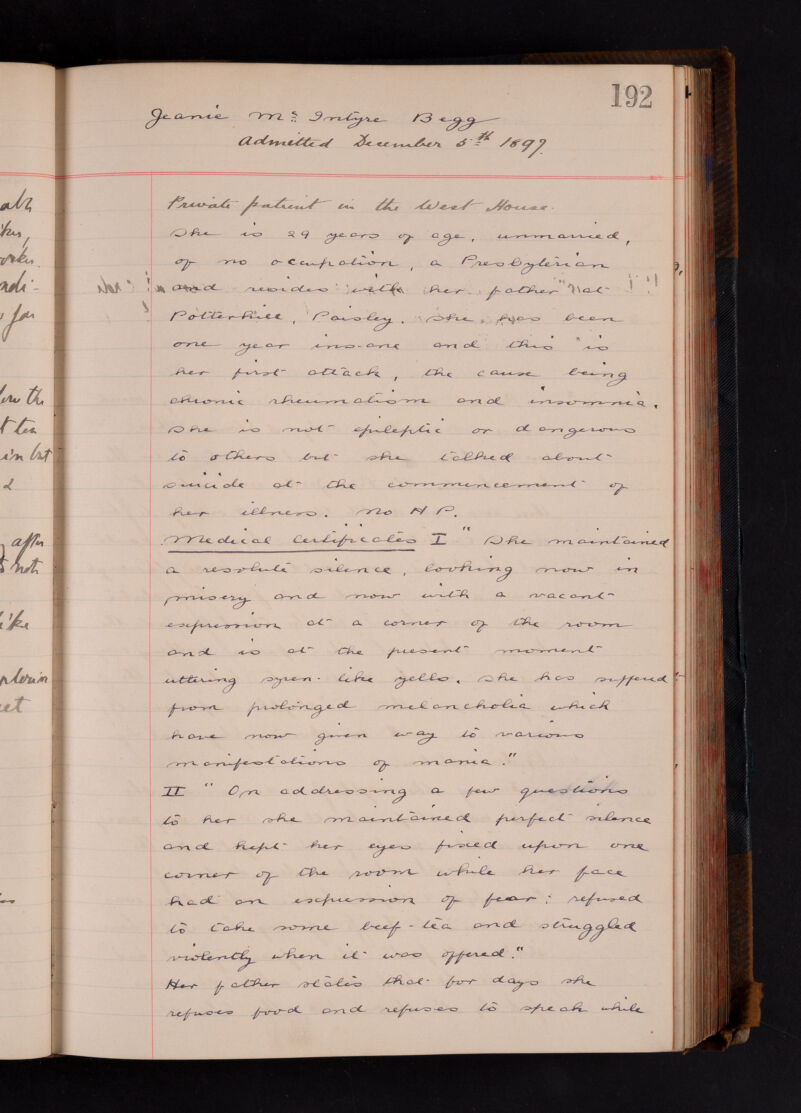 192
Jeanie Mc Intyre Begg
Admitted December 5th 1897
Private patient in the West House.
She is 29 years of age, unmarried,
of no occupation, a Presbyterian
and resides with her father at
Potterhill, Paisley. She has been
one year insane and this is
her first attack, the cause being
chronic rheumatism and insomnia.
She is not epileptic or dangerous
to others but she talked about
suicide at the commencement of
her illness. No H P.
Medical Certificates I "She maintained
a resolute silence, looking now in
misery and now with a vacant
expression at a corner of the room
and is at the present moment
uttering syren-like yells. She has suffered
from prolonged melancholia which
have now given way to various
manifestations of mania."
II "On addressing a few questions
to her she maintained perfect silence
and kept her eyes fixed upon one
corner of the room while her face
had an expression of fear: refused
to take some beef-tea and struggled
violently when it was offered."
Her father states that for days she
refuses food and refuses to speak while